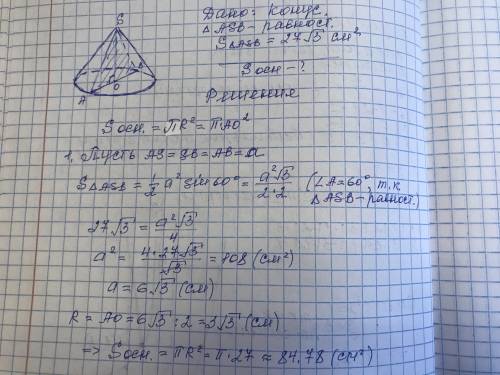 S
A
B
O
Дано: конус.
△ASB - равност.
S△ASB = 27√3 см²
Sосн - ?
Решение
Sосн. = ПR² = П·AO²
1. Пусть AS = SB = AB = a
S△ASB = 1/2 a² sin 60° = a²√3 / 2·2 (∠A = 60°, т.к. △ASB - равност.)
27√3 = a²√3 / 4
a² = 4·27√3 / √3 = 108 (см²)
a = 6√3 (см)
R = AO = 6√3 : 2 = 3√3 (см)
=> Sосн. = ПR² = П·27 ≈ 84,78 (см²)